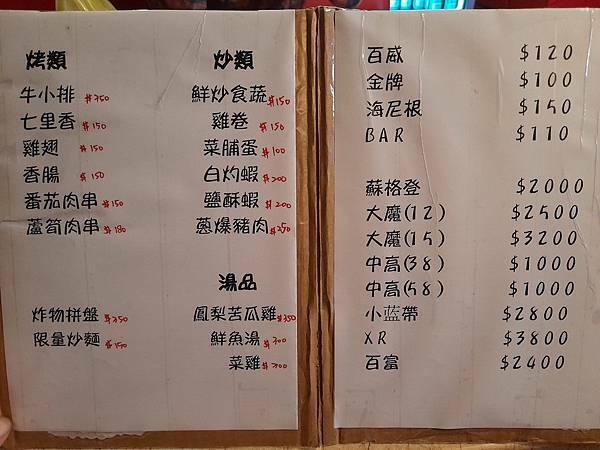 烤類
牛小排 $250
七里香 $150
雞翅 $150
香腸 $150
番茄肉串 $150
蘆筍肉串 $180
炸物拼盤 $250
限量炒麵 $150
炒類
鮮炒食蔬 $150
雞卷 $150
菜脯蛋 $100
白灼蝦 $200
鹽酥蝦 $200
蔥爆豬肉 $250
湯品
鳳梨苦瓜雞 $350
鮮魚湯 $300
菜雞
百威 $120
金牌 $100
海尼根 $150
BAR $110
蘇格登 $2000
大魔(12) $2500
大魔(15) $3200
中高(38) $1000
中高(58) $1000
小蓝帶 $2800
XR $3800
百富 $2400